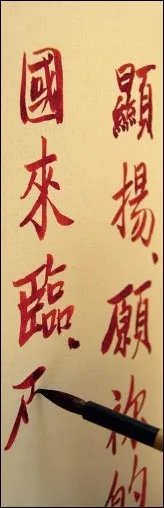 顯揚、願祢的
國來臨、